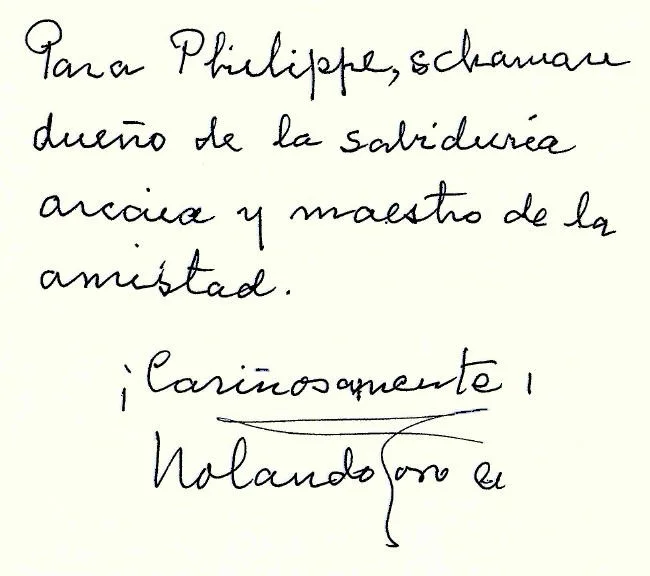 Para Philippe, schaman
dueño de la sabiduría
arcaica y maestro de la
amistad.
¡Cariñosamente!